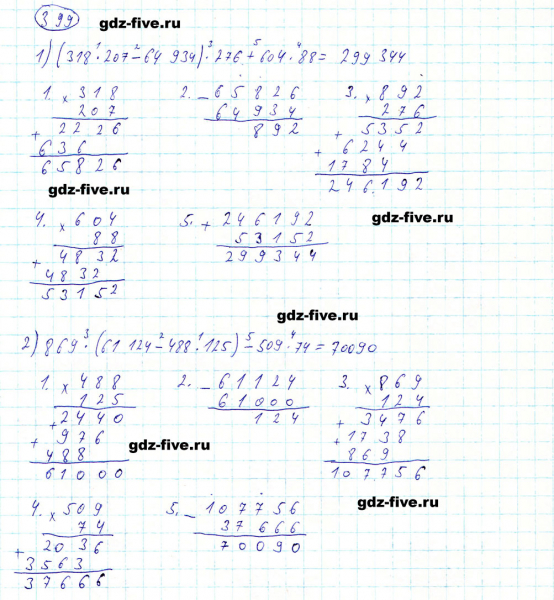 399 gdz-five.ru
1) (318 · 207 - 64 934) · 276 + 604 · 88 = 299 344
1. × 318
207
+ 2226
636
65826
2. - 65826
64934
892
3. × 892
276
+ 5352
+ 6244
1784
246192
gdz-five.ru
gdz-five.ru
4. × 604
88
+ 4832
4832
53152
5. + 246192
53152
299344
gdz-five.ru
2) 869 · (61 124 - 488 · 125) - 509 · 74 = 70090
1. × 488
125
+ 2440
+ 976
488
61000
2. - 61124
61000
124
3. × 869
124
+ 3476
+ 1738
869
107756
gdz-five.ru
gdz-five.ru
4. × 509
74
+ 2036
3563
37666
5. - 107756
37666
70090